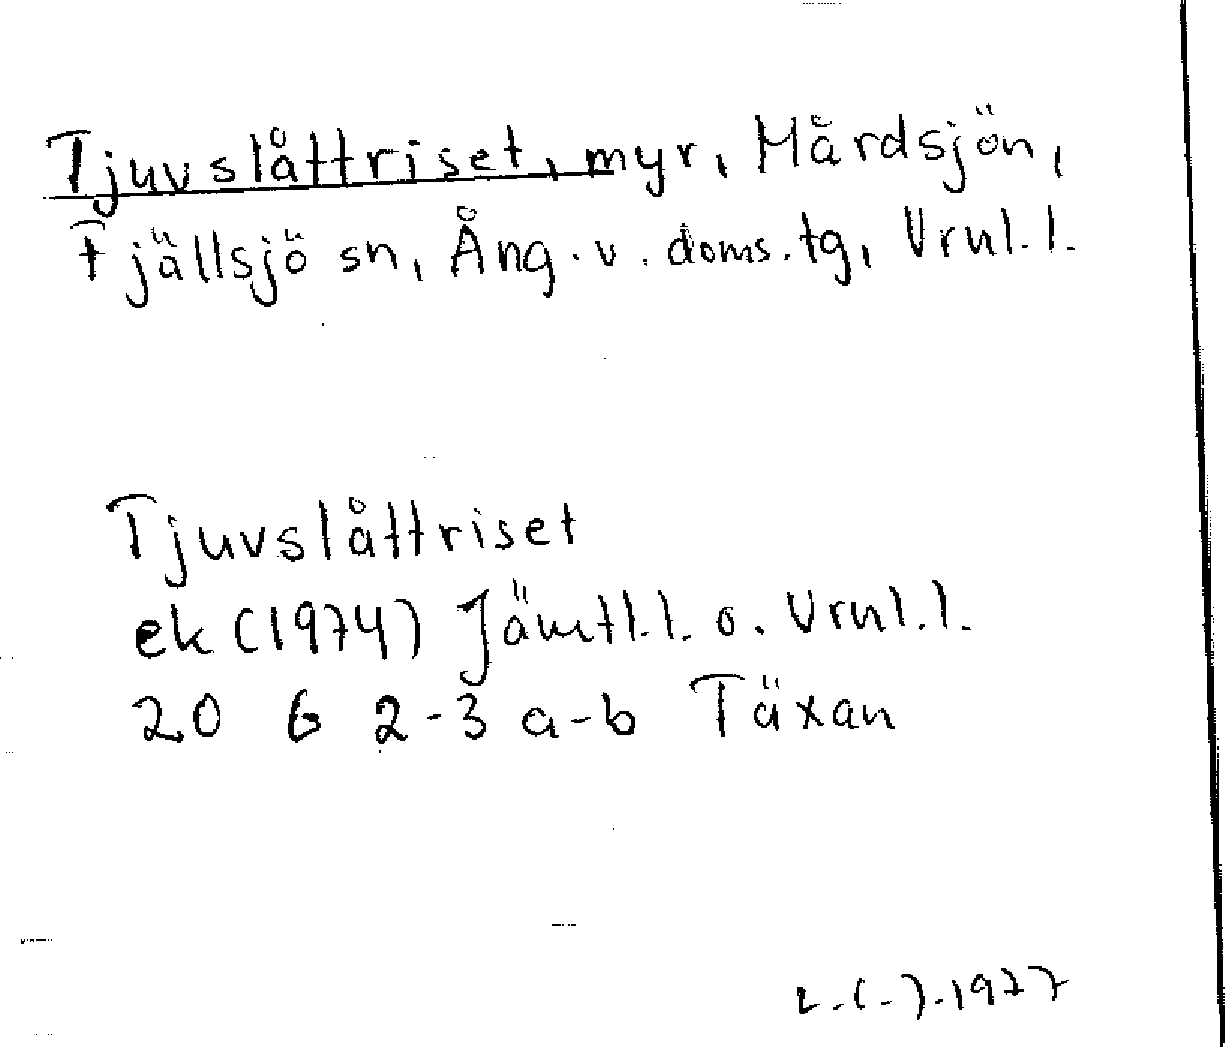 Tjuvslåttriset, myr, Mårdsjön,
Fjällsjö sn, Ång. v. doms. tg, Vrnl. l.
Tjuvslåttriset
ek (1974) Jämtl. l. o. Vrnl. l.
20 G 2-3 a-b Täxan
1977